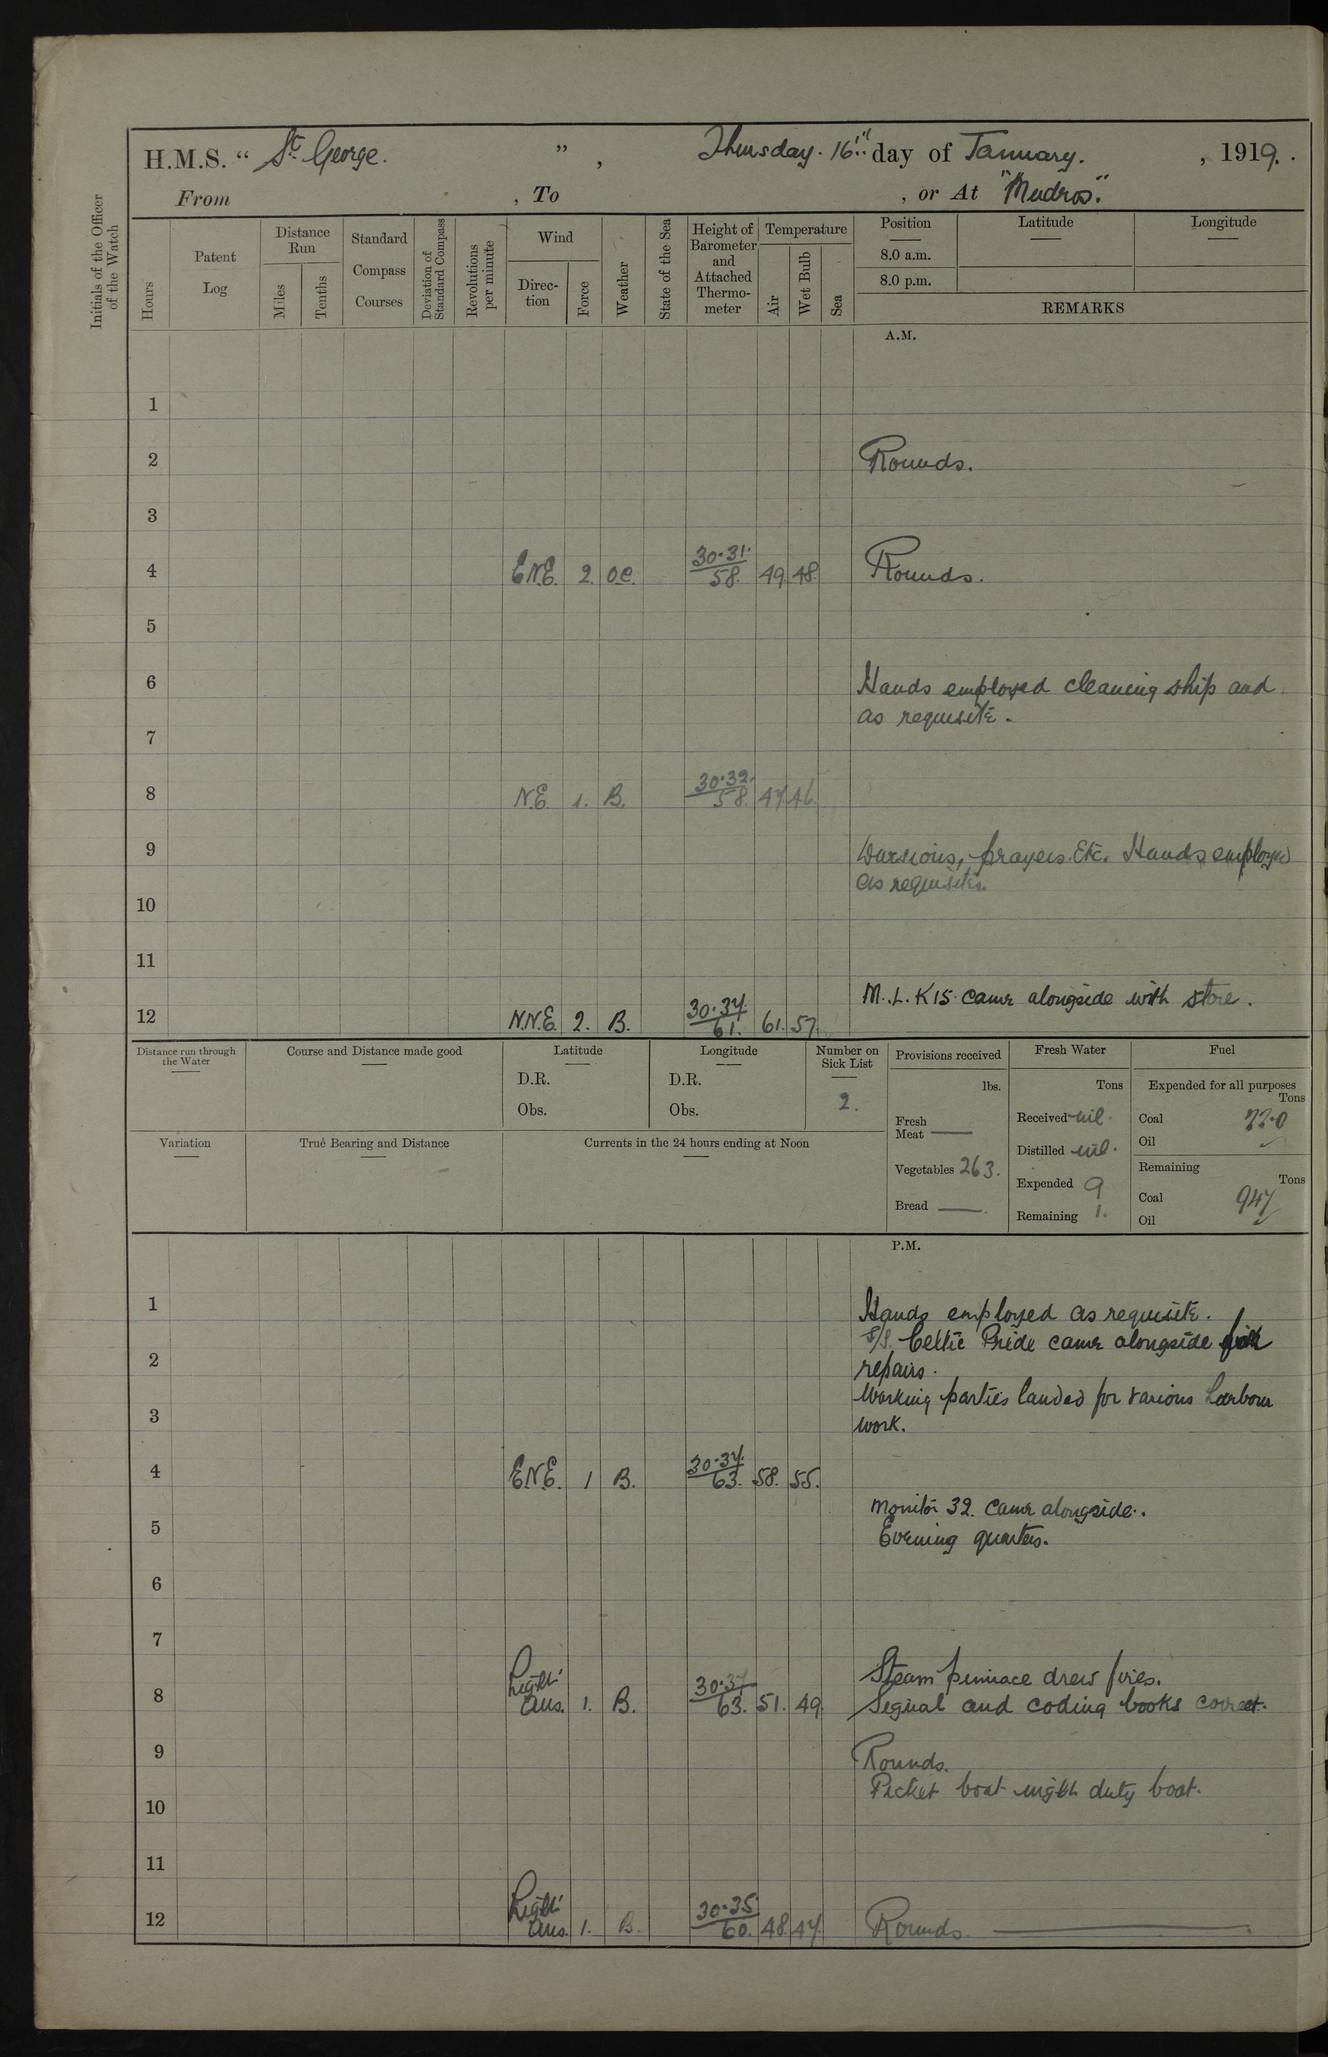 H.M.S. “ St George. ” , Thursday. 16th day of January. , 1919.
From , To , or At "Mudros."
Initials of the Officer of the Watch
Hours
Patent Log
Distance Run
Miles
Tenths
Standard Compass Courses
Deviation of Standard Compass
Revolutions per minute
Wind
Direction
Force
Weather
State of the Sea
Height of Barometer and Attached Thermometer
Temperature
Air
Wet Bulb
Sea
Position Latitude Longitude
8.0 a.m.
8.0 p.m.
REMARKS
A.M.
1
2 Rounds.
3
4 E.N.E. 2. o.c. 30.31. 58. 49. 48. Rounds.
5
6 Hands employed cleaning ship and
as requisite.
7
8 N.E. 1. B. 30.32. 58. 47. 46.
9 Divisions, prayers. Etc. Hands employed
as requisite.
10
11
M.L. K15 came alongside with store.
12 N.N.E. 2. B. 30.37. 61. 61. 57.
Distance run through the Water
Course and Distance made good
Latitude
D.R.
Obs.
Longitude
D.R.
Obs.
Number on Sick List
2.
Provisions received
lbs.
Fresh Meat —
Vegetables 263.
Bread —
Fresh Water
Tons
Received nil.
Distilled nil.
Expended 9
Remaining 1.
Fuel
Expended for all purposes
Tons
Coal
Oil
Remaining
Tons
Coal 947
Oil
Variation
True Bearing and Distance
Currents in the 24 hours ending at Noon
P.M.
1 Hands employed as requisite.
S/S. Celtic Pride came alongside for
2 repairs.
Working parties landed for various harbour
3 work.
4 E.N.E. 1 B. 30.37. 63. 58. 55.
Monitor 32. came alongside.
5 Evening quarters.
6
7
Steam pinnace drew fires.
8 Light Airs. 1. B. 30.37 63. 51. 49. Signal and coding books correct.
9 Rounds.
Picket boat night duty boat.
10
11
12 Light Airs. 1. B. 30.35 60. 48. 47. Rounds.